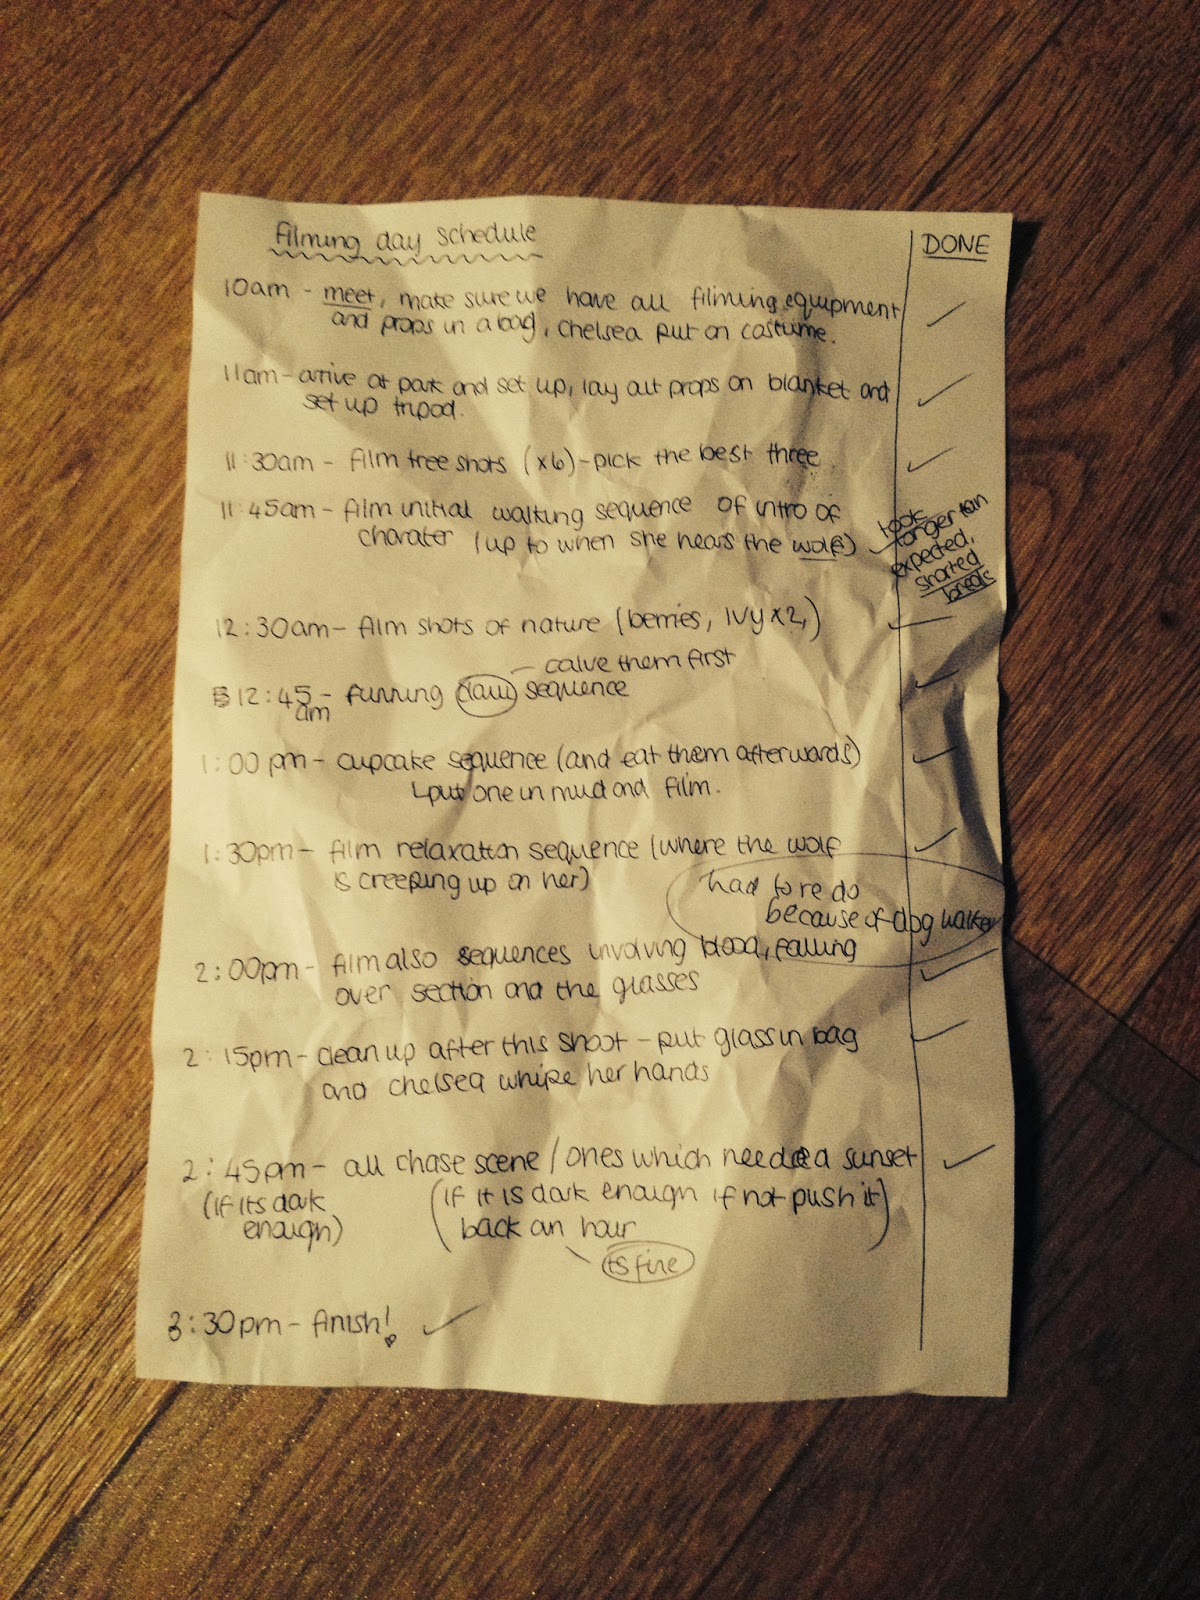 filming day schedule
DONE
10am - meet, make sure we have all filming equipment
and props in a bag, chelsea put on costume.
11am - arrive at park and set up, lay out props on blanket and
set up tripod.
11:30am - film tree shots (x6) - pick the best three
11:45am - film initial walking sequence of intro of
charater (up to when she hears the wolf)
took
longer tan
expected,
started
breaks
12:30am - film shots of nature (berries, ivy x2,)
calve them first
12:45 - running claw sequence
am
1:00pm - cupcake sequence (and eat them afterwards)
put one in mud and film.
1:30pm - film relaxation sequence (where the wolf
is creeping up on her)
had to re do
because of dog walker
2:00pm - film also sequences involving blood, falling
over section and the glasses
2:15pm - clean up after this shoot - put glass in bag
and chelsea whipe her hands
2:45pm - all chase scene / ones which needed a sunset
(if its dark (if it is dark enough if not push it
enough) back an hour)
its fine
3:30pm - finish!